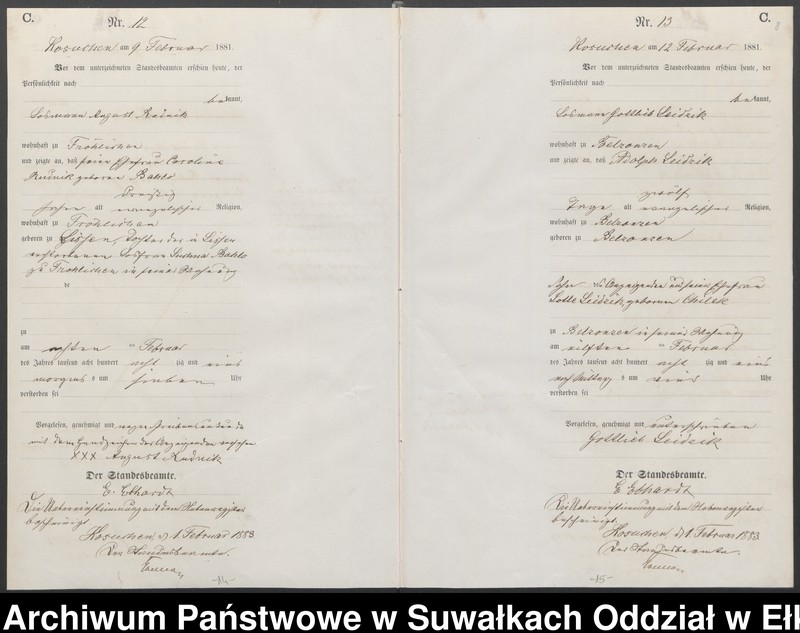 C.
Nr. 12
Kosuchen am 9 Februar 1881.
Vor dem unterzeichneten Standesbeamten erschien heute, der
Persönlichkeit nach
bekannt,
Losmann August Rudnik
wohnhaft zu Fröhlichen
und zeigte an, daß seine Ehefrau Caroline
Rudnik geboren Bahlo
Dreißig
Jahre alt evangelischer Religion,
wohnhaft zu Fröhlichen
geboren zu Lissen, Tochter der in Lissen
verstorbenen Losfrau Bahlo
zu Fröhlichen in seiner Wohnung
zu
am achten Februar
des Jahres tausend acht hundert acht zig und eins
morgens um sieben Uhr
verstorben sei
Vorgelesen, genehmigt und wegen Schreibensunkunde
mit dem Handzeichen des Anzeigenden versehen
XXX August Rudnik
Der Standesbeamte.
E. Ebhardt
Die Uebereinstimmung mit dem Nebenregister
bescheinigt
Kosuchen, d 1 Februar 1883
Der Standesbeamte.
-14-
Nr. 13
C.
8
Kosuchen am 12 Februar 1881.
Vor dem unterzeichneten Standesbeamten erschien heute, der
Persönlichkeit nach
bekannt,
Losmann Gottlieb Seidzik
wohnhaft zu Belzonzen
und zeigte an, daß Adolph Seidzik
zwölf
Tage alt evangelischer Religion,
wohnhaft zu Belzonzen
geboren zu Belzonzen
Sohn des Anzeigenden und seiner Ehefrau
Lotte Seidzik, geborenen
zu Belzonzen in seiner Wohnung
am eilften Februar
des Jahres tausend acht hundert acht zig und eins
nach Mittag um vier Uhr
verstorben sei
Vorgelesen, genehmigt und unterschrieben
Gottlieb Seidzik
Der Standesbeamte.
E Ebhardt
Die Uebereinstimmung mit dem Nebenregister
bescheinigt
Kosuchen, d 1 Februar 1883
Der Standesbeamte.
-15-
Archiwum Państwowe w Suwałkach Oddział w Ełk